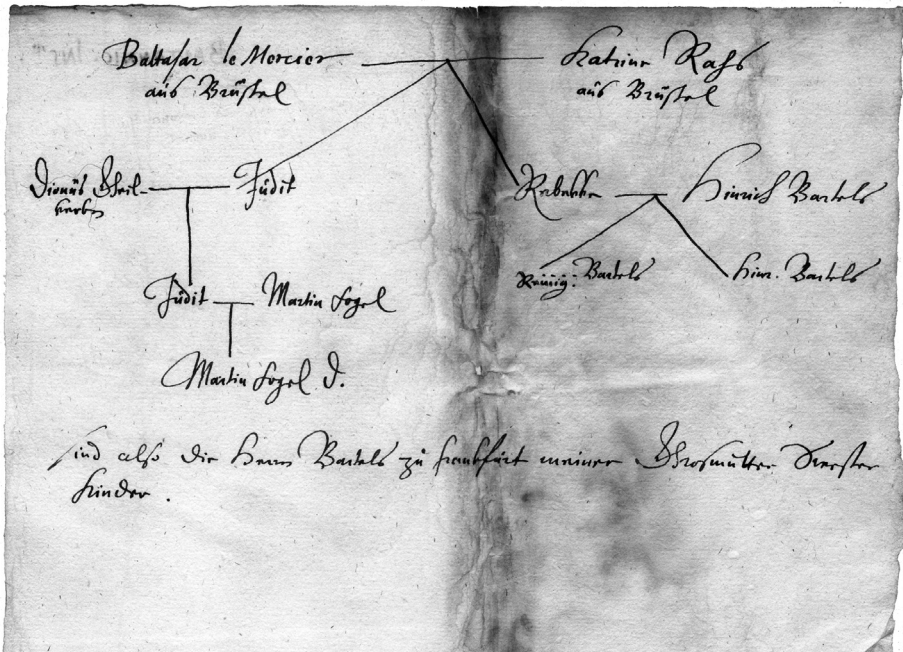 Baltasar le Mercier
aus Brüssel
Katrine Rahs
aus Brüssel
Dionüs
Judit
Rebekka
Hinrich Bartels
Judit
Martin Fogel
Bartels
Hinr. Bartels
Martin Fogel D.
sind also die Herrn Bartels zu Frankfurt meiner Grosmutter Swester
Kinder.